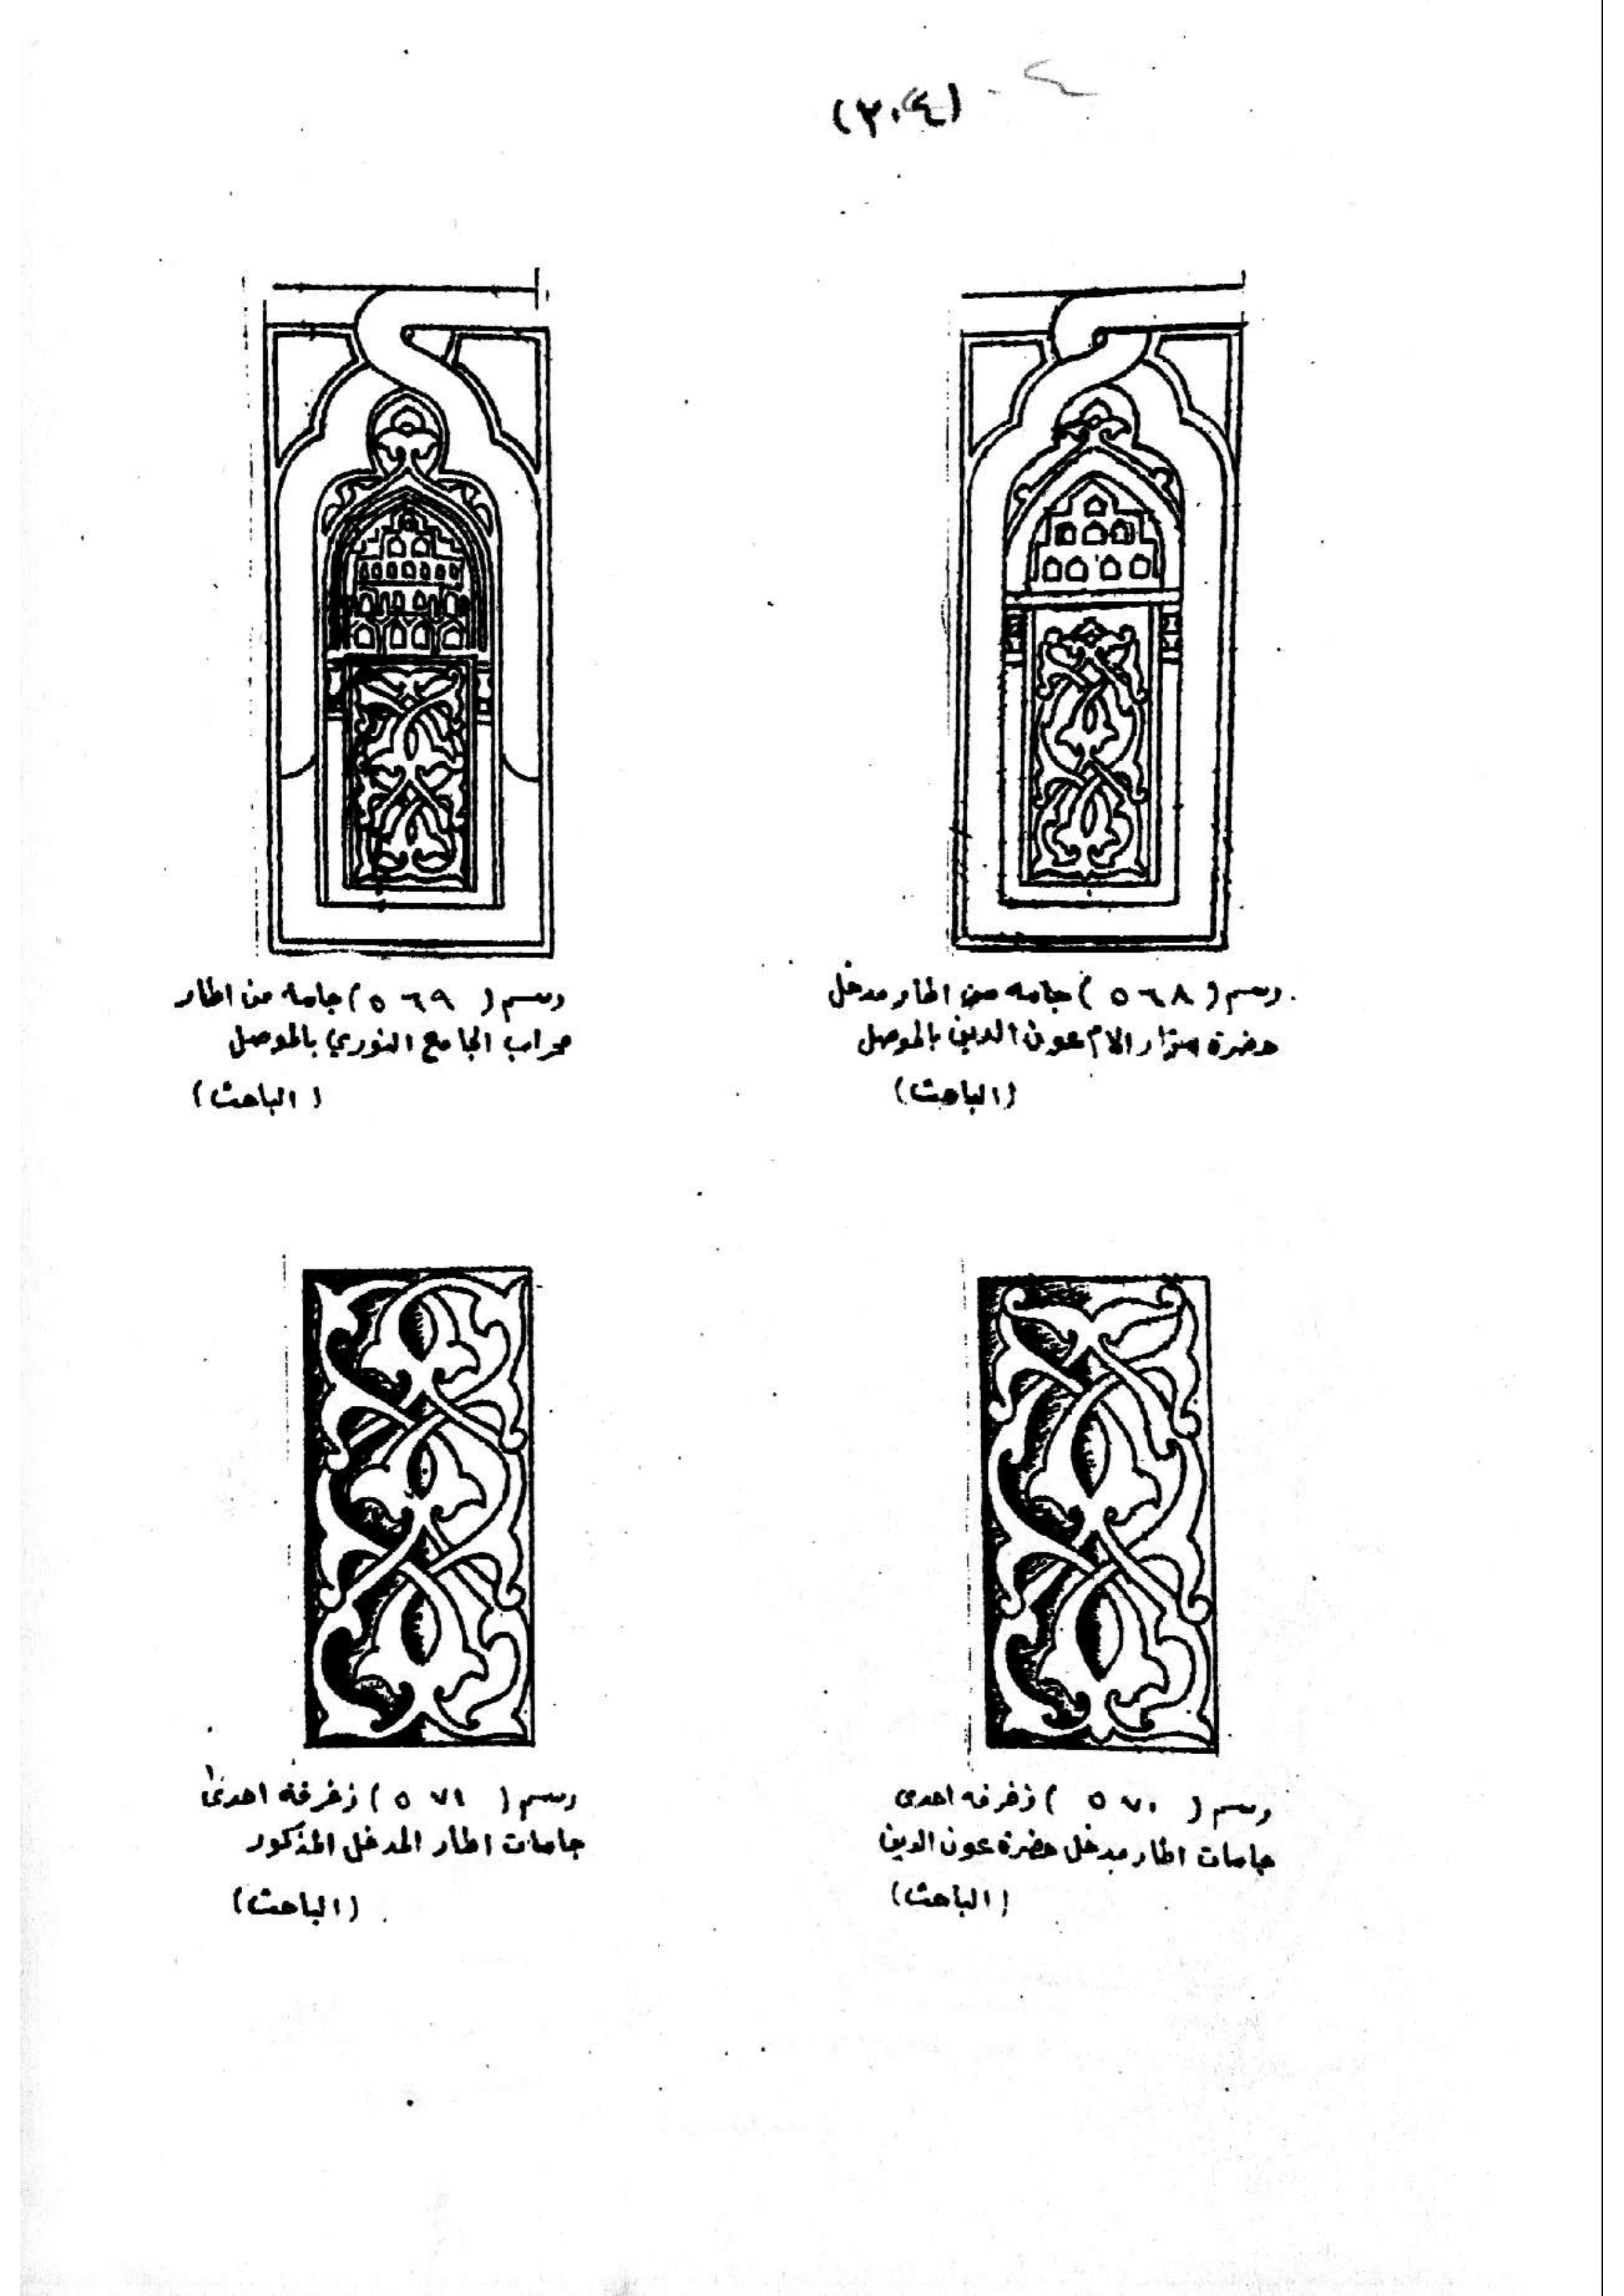 (٢٠٤)
رسم (٥٦٨) جامه من اطار مدخل
حضرة مزار الامام عون الدين بالموصل
(الباحث)
رسم (٥٦٩) جامة من اطار
محراب الجامع النوري بالموصل
(الباحث)
رسم (٥٧٠) زخرفه احدى
جامات اطار مدخل حضرة عون الدين
(الباحث)
رسم (٥٧١) زخرفة احدى
جامات اطار المدخل المذكور
(الباحث)